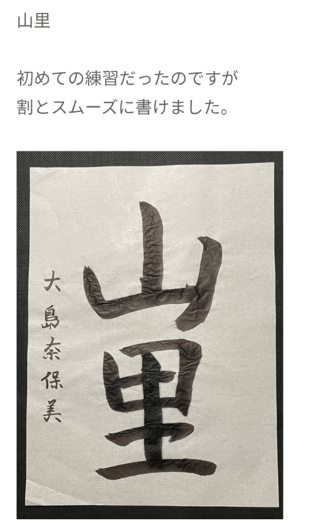 山里
初めての練習だったのですが
割とスムーズに書けました。
山里
大島奈保美